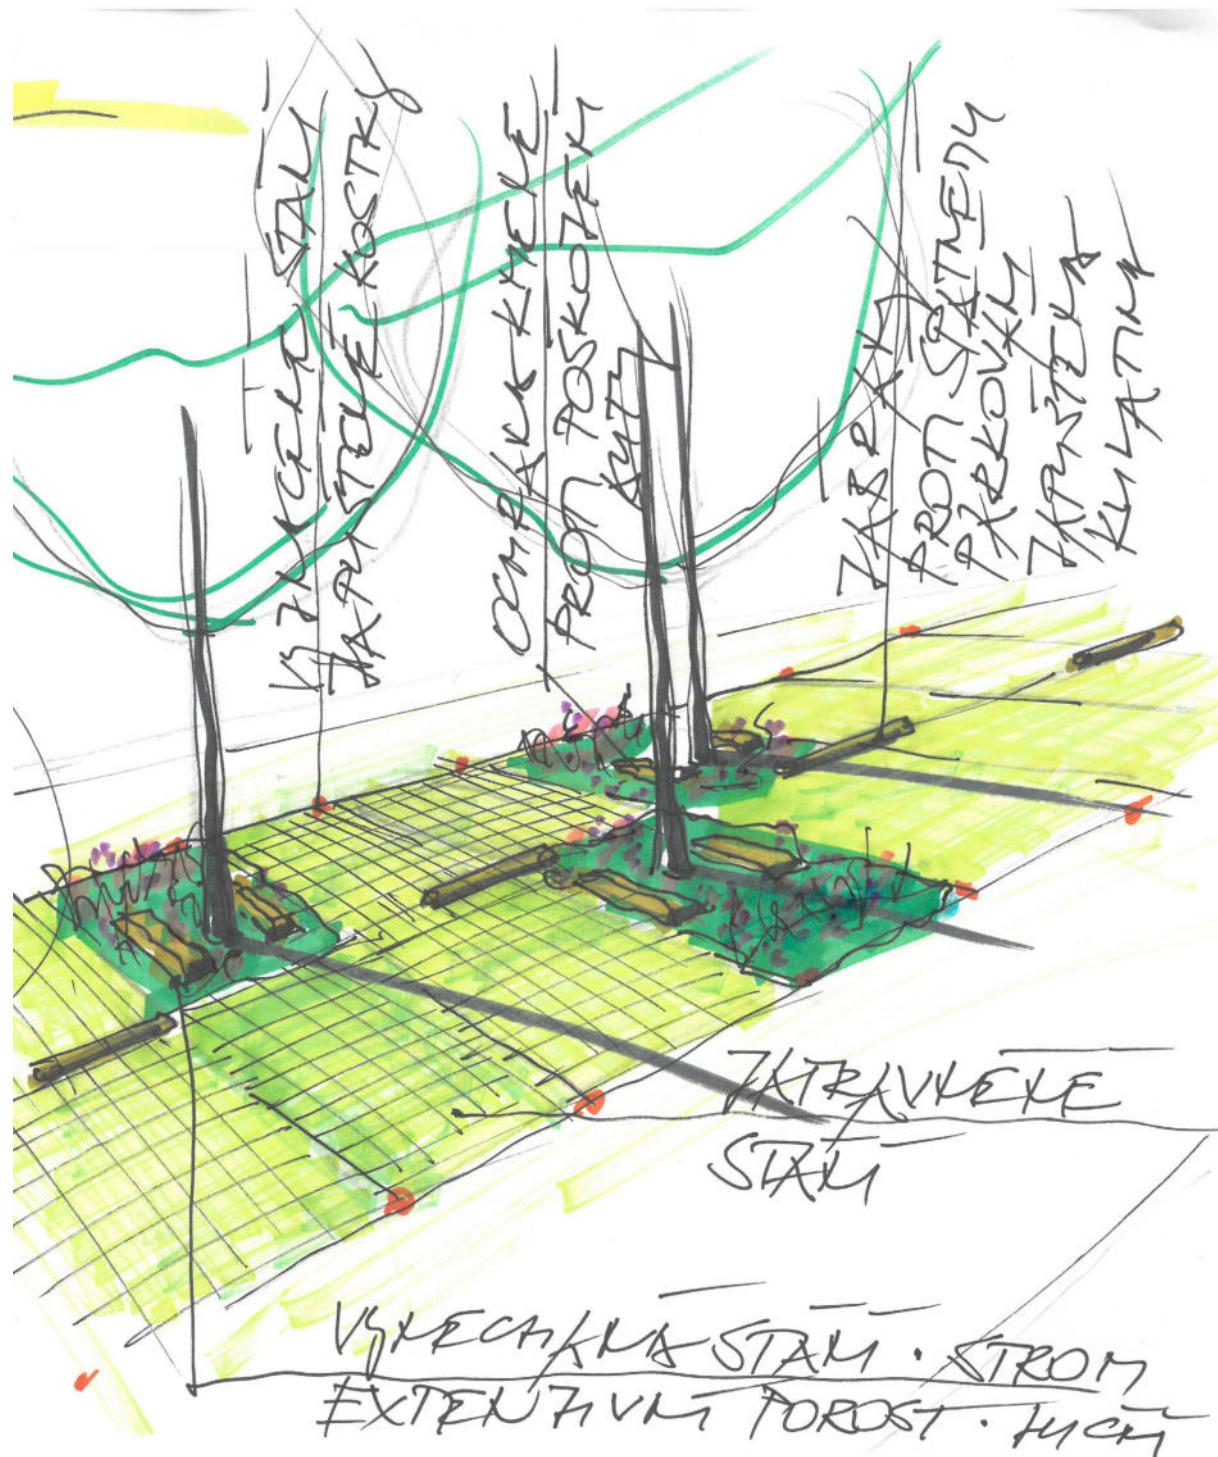 VYZNAČENÍ STÁNÍ
ZAPUŠTĚNÉ KOSTKY
OCHRANA KMENE
PROTI POŠKOZENÍ
AUTY
ZÁBRANY
PROTI ŠPATNÉMU
PARKOVÁNÍ
ZAPUŠTĚNÁ
KULATINA
ZATRAVNĚNÉ
STÁNÍ
VYNECHANÁ STÁNÍ · STROM
EXTENZIVNÍ POROST · LUČNÍ